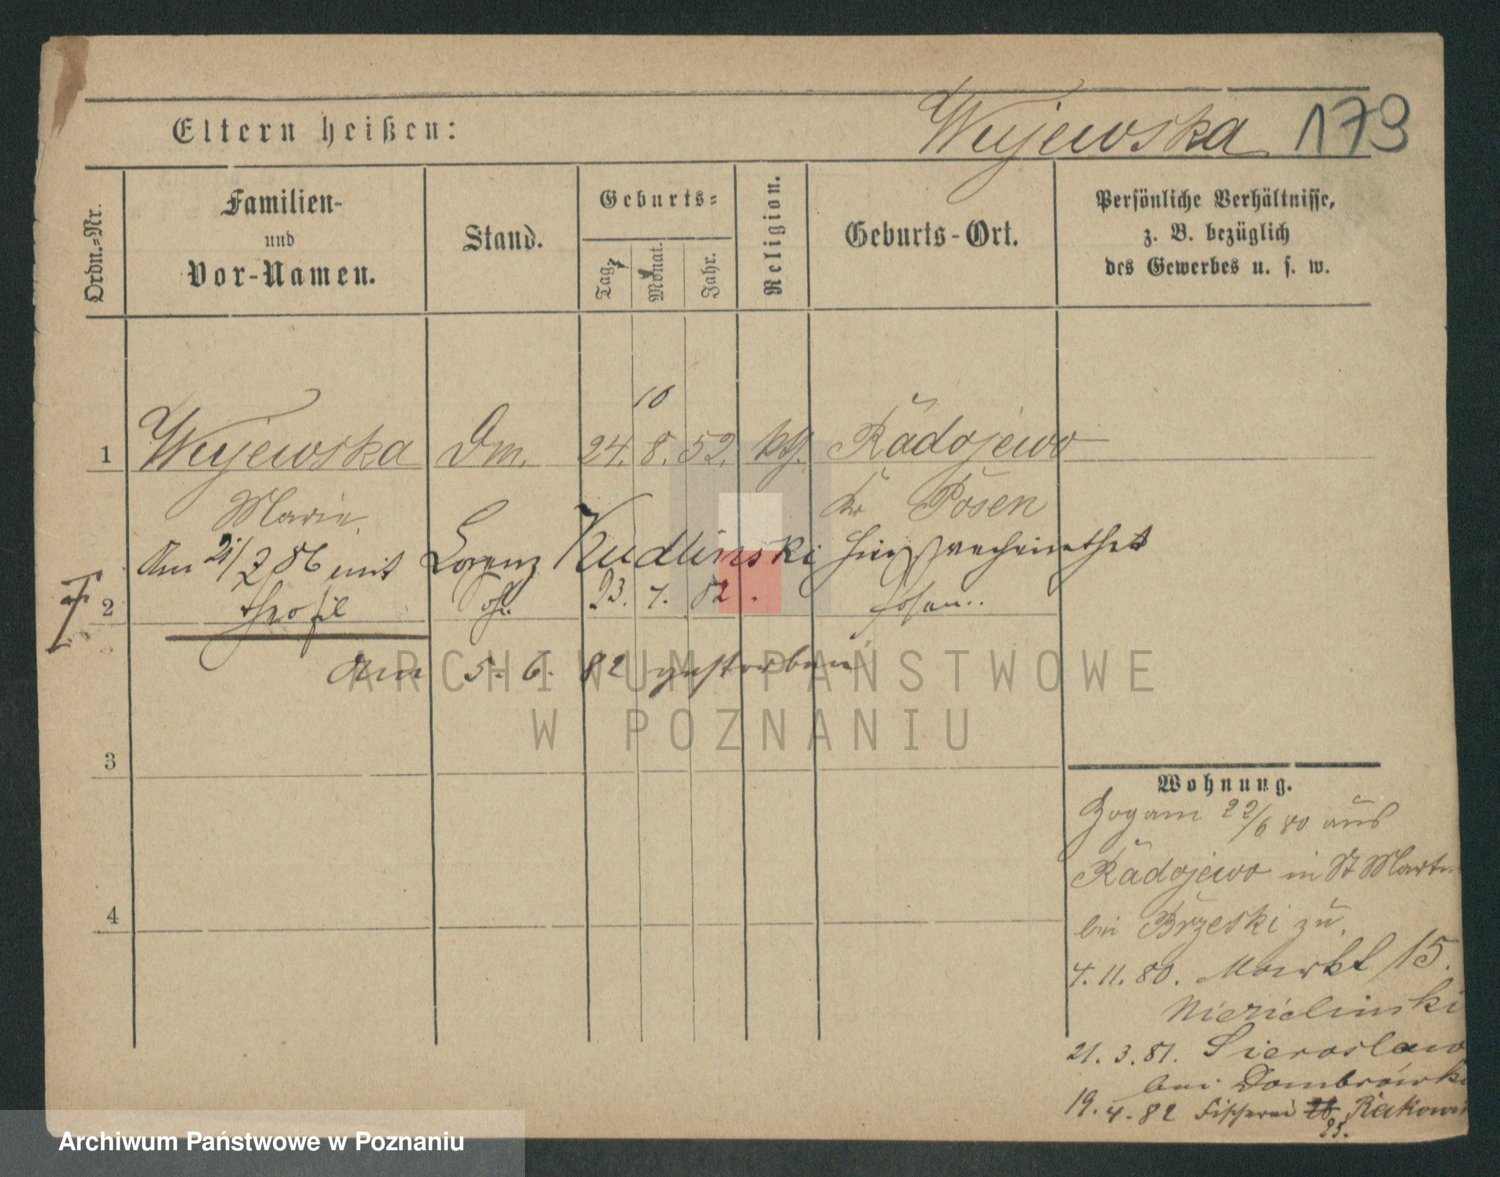 Eltern heißen: Wujewska 179
Ordn.=Nr.
Familien-
und
Vor-Namen.
Stand.
Geburts=
Tag.
Monat.
Jahr.
Religion.
Geburts-Ort.
Persönliche Verhältnisse,
z. B. bezüglich
des Gewerbes u. s. w.
10
1 Wujewska Dm. 24. 8. 52. kth. Radojewo
Marie Kr Posen
Am 21/2 86 mit Lorenz Kudlinski hier verheirathet
2 Theofil 23. 4. 82. Posen
Am 5. 6. 82 gestorben
3
4
Wohnung.
Zog am 22/6 80 aus
Radojewo in St Martin
bei Brzeski zu.
4. 11. 80. Markt 15.
Niezielinski
21. 3. 81. Sieroslaw
bei Dombrowski
19. 4. 82 Fischerei 26 Rakowi
25.
ARCHIWUM PAŃSTWOWE
W POZNANIU
Archiwum Państwowe w Poznaniu